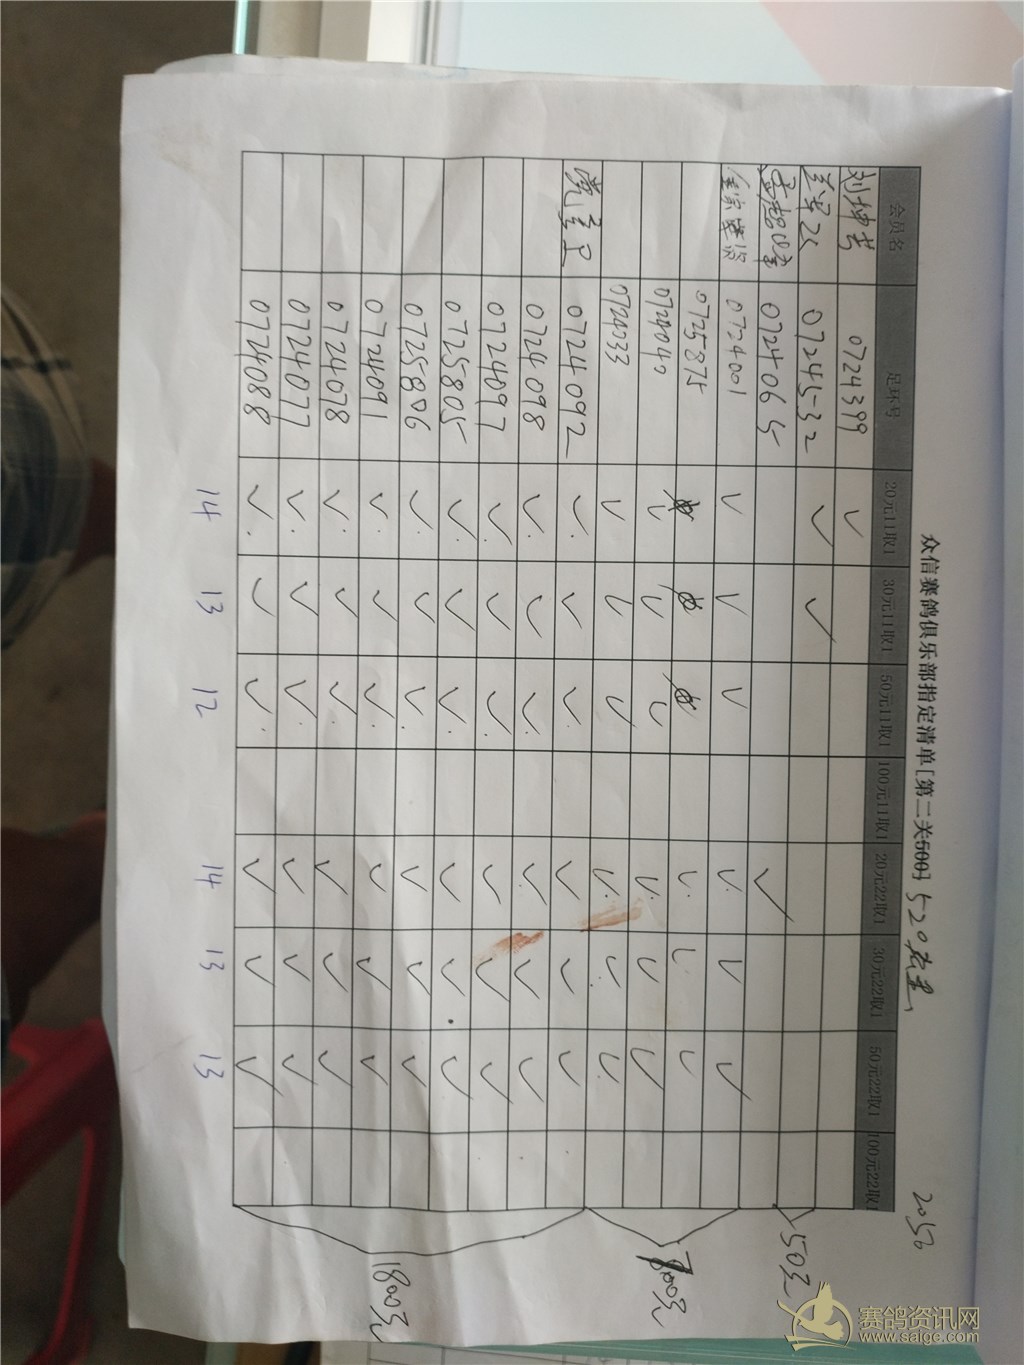 众信赛鸽俱乐部指定清单[第二关500] 520
会员名 足环号 20元11取1 30元11取1 50元11取1 100元11取1 20元22取1 30元22取1 50元22取1 100元22取1
0724399 ✓
0724532 ✓ ✓
0724065 ✓
50元
0724001 ✓ ✓ ✓ ✓ ✓ ✓
0725875 ✓ ✓ ✓
0724040 ✓ ✓ ✓ ✓ ✓ ✓
0724233 ✓ ✓ ✓ ✓ ✓ ✓
0724092 ✓ ✓ ✓ ✓ ✓ ✓
0724098 ✓ ✓ ✓ ✓ ✓ ✓
0724097 ✓ ✓ ✓ ✓ ✓ ✓
0725805 ✓ ✓ ✓ ✓ ✓ ✓
0725806 ✓ ✓ ✓ ✓ ✓ ✓
0724091 ✓ ✓ ✓ ✓ ✓ ✓
0724078 ✓ ✓ ✓ ✓ ✓ ✓
0724077 ✓ ✓ ✓ ✓ ✓ ✓
0724088 ✓ ✓ ✓ ✓ ✓ ✓
1800元
14 13 12 14 13 13
赛鸽资讯网
www.saige.com